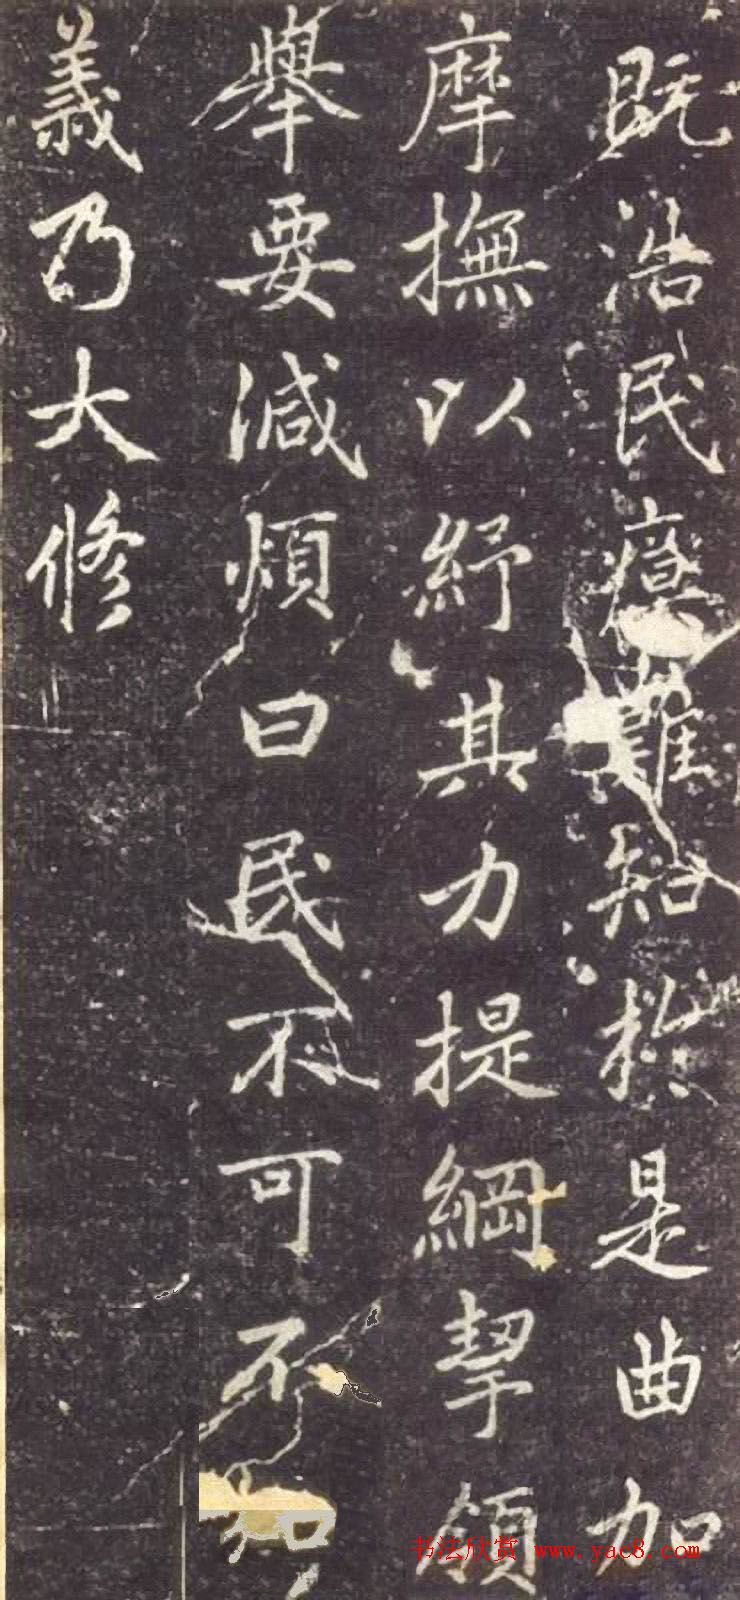 既浩民瘼難知於是曲加
摩撫以紓其力提綱挈領
舉要減煩曰民不可不知
義乃大修
书法欣赏 www.yac8.com